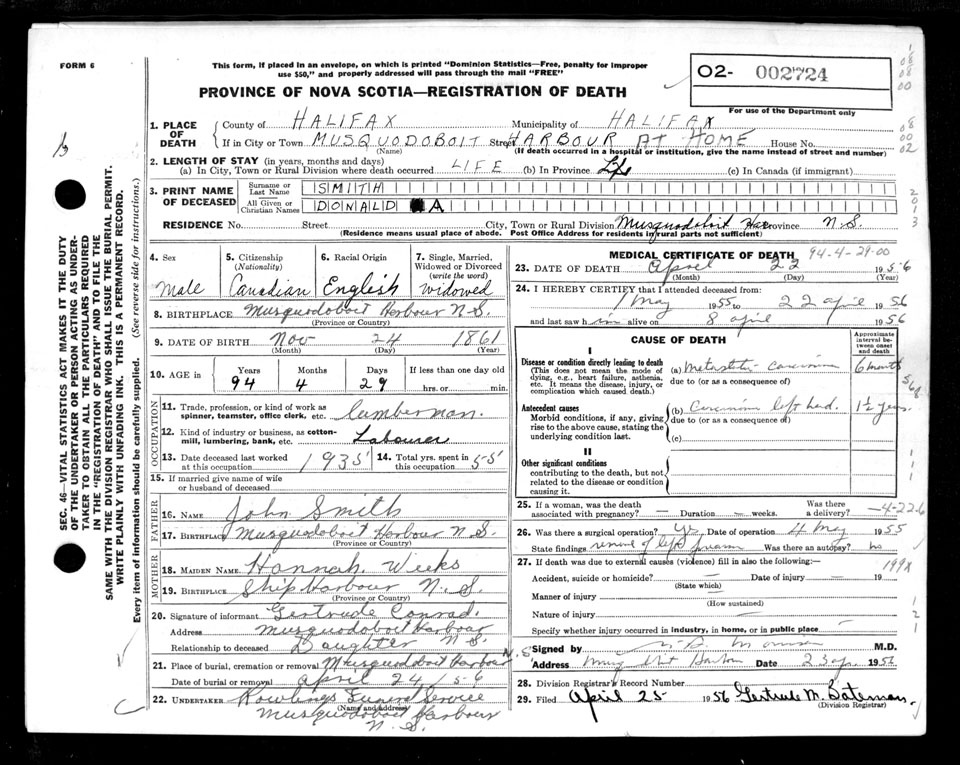 FORM 6
This form, if placed in an envelope, on which is printed "Dominion Statistics—Free, penalty for improper
use $50," and properly addressed will pass through the mail "FREE"
02- 002724
For use of the Department only
PROVINCE OF NOVA SCOTIA—REGISTRATION OF DEATH
SEC. 46—VITAL STATISTICS ACT MAKES IT THE DUTY
OF THE UNDERTAKER OR PERSON ACTING AS UNDER-
TAKER TO OBTAIN ALL THE PARTICULARS REQUIRED
IN THE "REGISTRATION OF DEATH" AND TO FILE THE
SAME WITH THE DIVISION REGISTRAR WHO SHALL ISSUE THE BURIAL PERMIT.
WRITE PLAINLY WITH UNFADING INK. THIS IS A PERMANENT RECORD.
Every item of information should be carefully supplied. (See reverse side for instructions.)
1. PLACE OF DEATH County of HALIFAX Municipality of HALIFAX
If in City or Town MUSQUODOBOIT Street HARBOUR AT HOME House No.
(Name) (If death occurred in a hospital or institution, give the name instead of street and number)
2. LENGTH OF STAY (in years, months and days)
(a) In City, Town or Rural Division where death occurred LIFE (b) In Province Life (c) In Canada (if immigrant)
3. PRINT NAME OF DECEASED Surname or Last Name SMITH
All Given or Christian Names DONALD A
RESIDENCE No. Street City, Town or Rural Division Musquodoboit Har Province N.S.
(Residence means usual place of abode. Post Office Address for residents in rural parts not sufficient)
4. Sex Male
5. Citizenship (Nationality) Canadian
6. Racial Origin English
7. Single, Married, Widowed or Divorced (write the word) Widowed
8. BIRTHPLACE Musquodoboit Harbour N.S.
(Province or Country)
9. DATE OF BIRTH Nov 24 1861
(Month) (Day) (Year)
10. AGE in Years Months Days If less than one day old
94 4 29 hrs. or min.
OCCUPATION
11. Trade, profession, or kind of work as spinner, teamster, office clerk, etc. lumberman.
12. Kind of industry or business, as cotton-mill, lumbering, bank, etc. Labourer
13. Date deceased last worked at this occupation 1935 14. Total yrs. spent in this occupation 55
15. If married give name of wife or husband of deceased
FATHER
16. NAME John Smith
17. BIRTHPLACE Musquodoboit Harbour N.S.
(Province or Country)
MOTHER
18. MAIDEN NAME Hannah Weeks
19. BIRTHPLACE Ship Harbour N.S.
(Province or Country)
20. Signature of informant Gertrude Conrad.
Address Musquodoboit Harbour
N.S.
Relationship to deceased Daughter
21. Place of burial, cremation or removal Musquodoboit Harbour N.S.
Date of burial or removal April 24/56
22. UNDERTAKER Rowlings Funeral Service
(Name and address)
Musquodoboit Harbour
N.S.
MEDICAL CERTIFICATE OF DEATH 94-4-29-00
23. DATE OF DEATH April 22 1956
(Month) (Day) (Year)
24. I HEREBY CERTIFY that I attended deceased from:
1 May 1955 to 22 april 1956
and last saw him alive on 8 april 1956
CAUSE OF DEATH
Approximate interval between onset and death
I
Disease or condition directly leading to death
(This does not mean the mode of dying, e.g., heart failure, asthenia, etc. It means the disease, injury, or complication which caused death.)
(a) Metastatic Carcinoma 6 months
due to (or as a consequence of)
Antecedent causes
Morbid conditions, if any, giving rise to the above cause, stating the underlying condition last.
(b) Carcinoma left hand. 1½ years.
due to (or as a consequence of)
(c)
II
Other significant conditions
contributing to the death, but not related to the disease or condition causing it.
25. If a woman, was the death associated with pregnancy? — Duration — weeks. Was there a delivery? — 4-22-6
26. Was there a surgical operation? Yes Date of operation 4 May 1955
State findings removal of left forearm Was there an autopsy? no
27. If death was due to external causes (violence) fill in also the following:— 199x
Accident, suicide or homicide? — Date of injury — 19
(State which)
Manner of injury
(How sustained)
Nature of injury —
Specify whether injury occurred in industry, in home, or in public place
Signed by M.D.
Address Date 23 apr. 1956
28. Division Registrar's Record Number
29. Filed April 25 1956 Gertrude M. Bateman.
(Division Registrar)